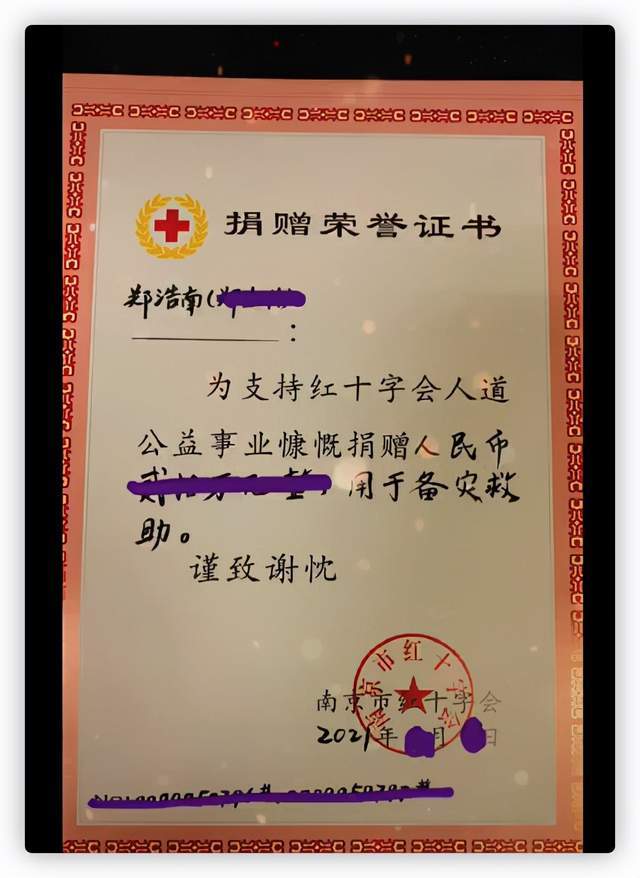 捐赠荣誉证书
郑浩南(
:
为支持红十字会人道
公益事业慷慨捐赠人民币
用于备灾救
助。
谨致谢忱
南京市红十字会
南京市红十字会
2021年 月 日